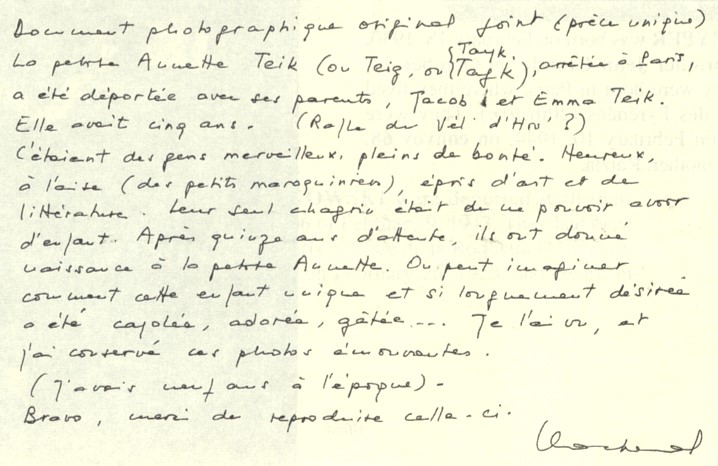 Document photographique original joint (pièce unique)
La petite Annette Teik (ou Teig, ou {Tayk. Taÿk), arrêtée à Paris,
a été déportée avec ses parents, Jacob et Emma Teik.
Elle avait cinq ans. (Rafle du Vél' d'Hiv' ?)
C'étaient des gens merveilleux, pleins de bonté. Heureux,
à l'aise (des petits maroquiniers), épris d'art et de
littérature. Leur seul chagrin était de ne pouvoir avoir
d'enfant. Après quinze ans d'attente, ils ont donné
naissance à la petite Annette. On peut imaginer
comment cette enfant unique et si longuement désirée
a été cajolée, adorée, gâtée.... Je l'ai vu, et
j'ai conservé ces photos émouvantes.
(J'avais neuf ans à l'époque) -
Bravo, merci de reproduire celle-ci.